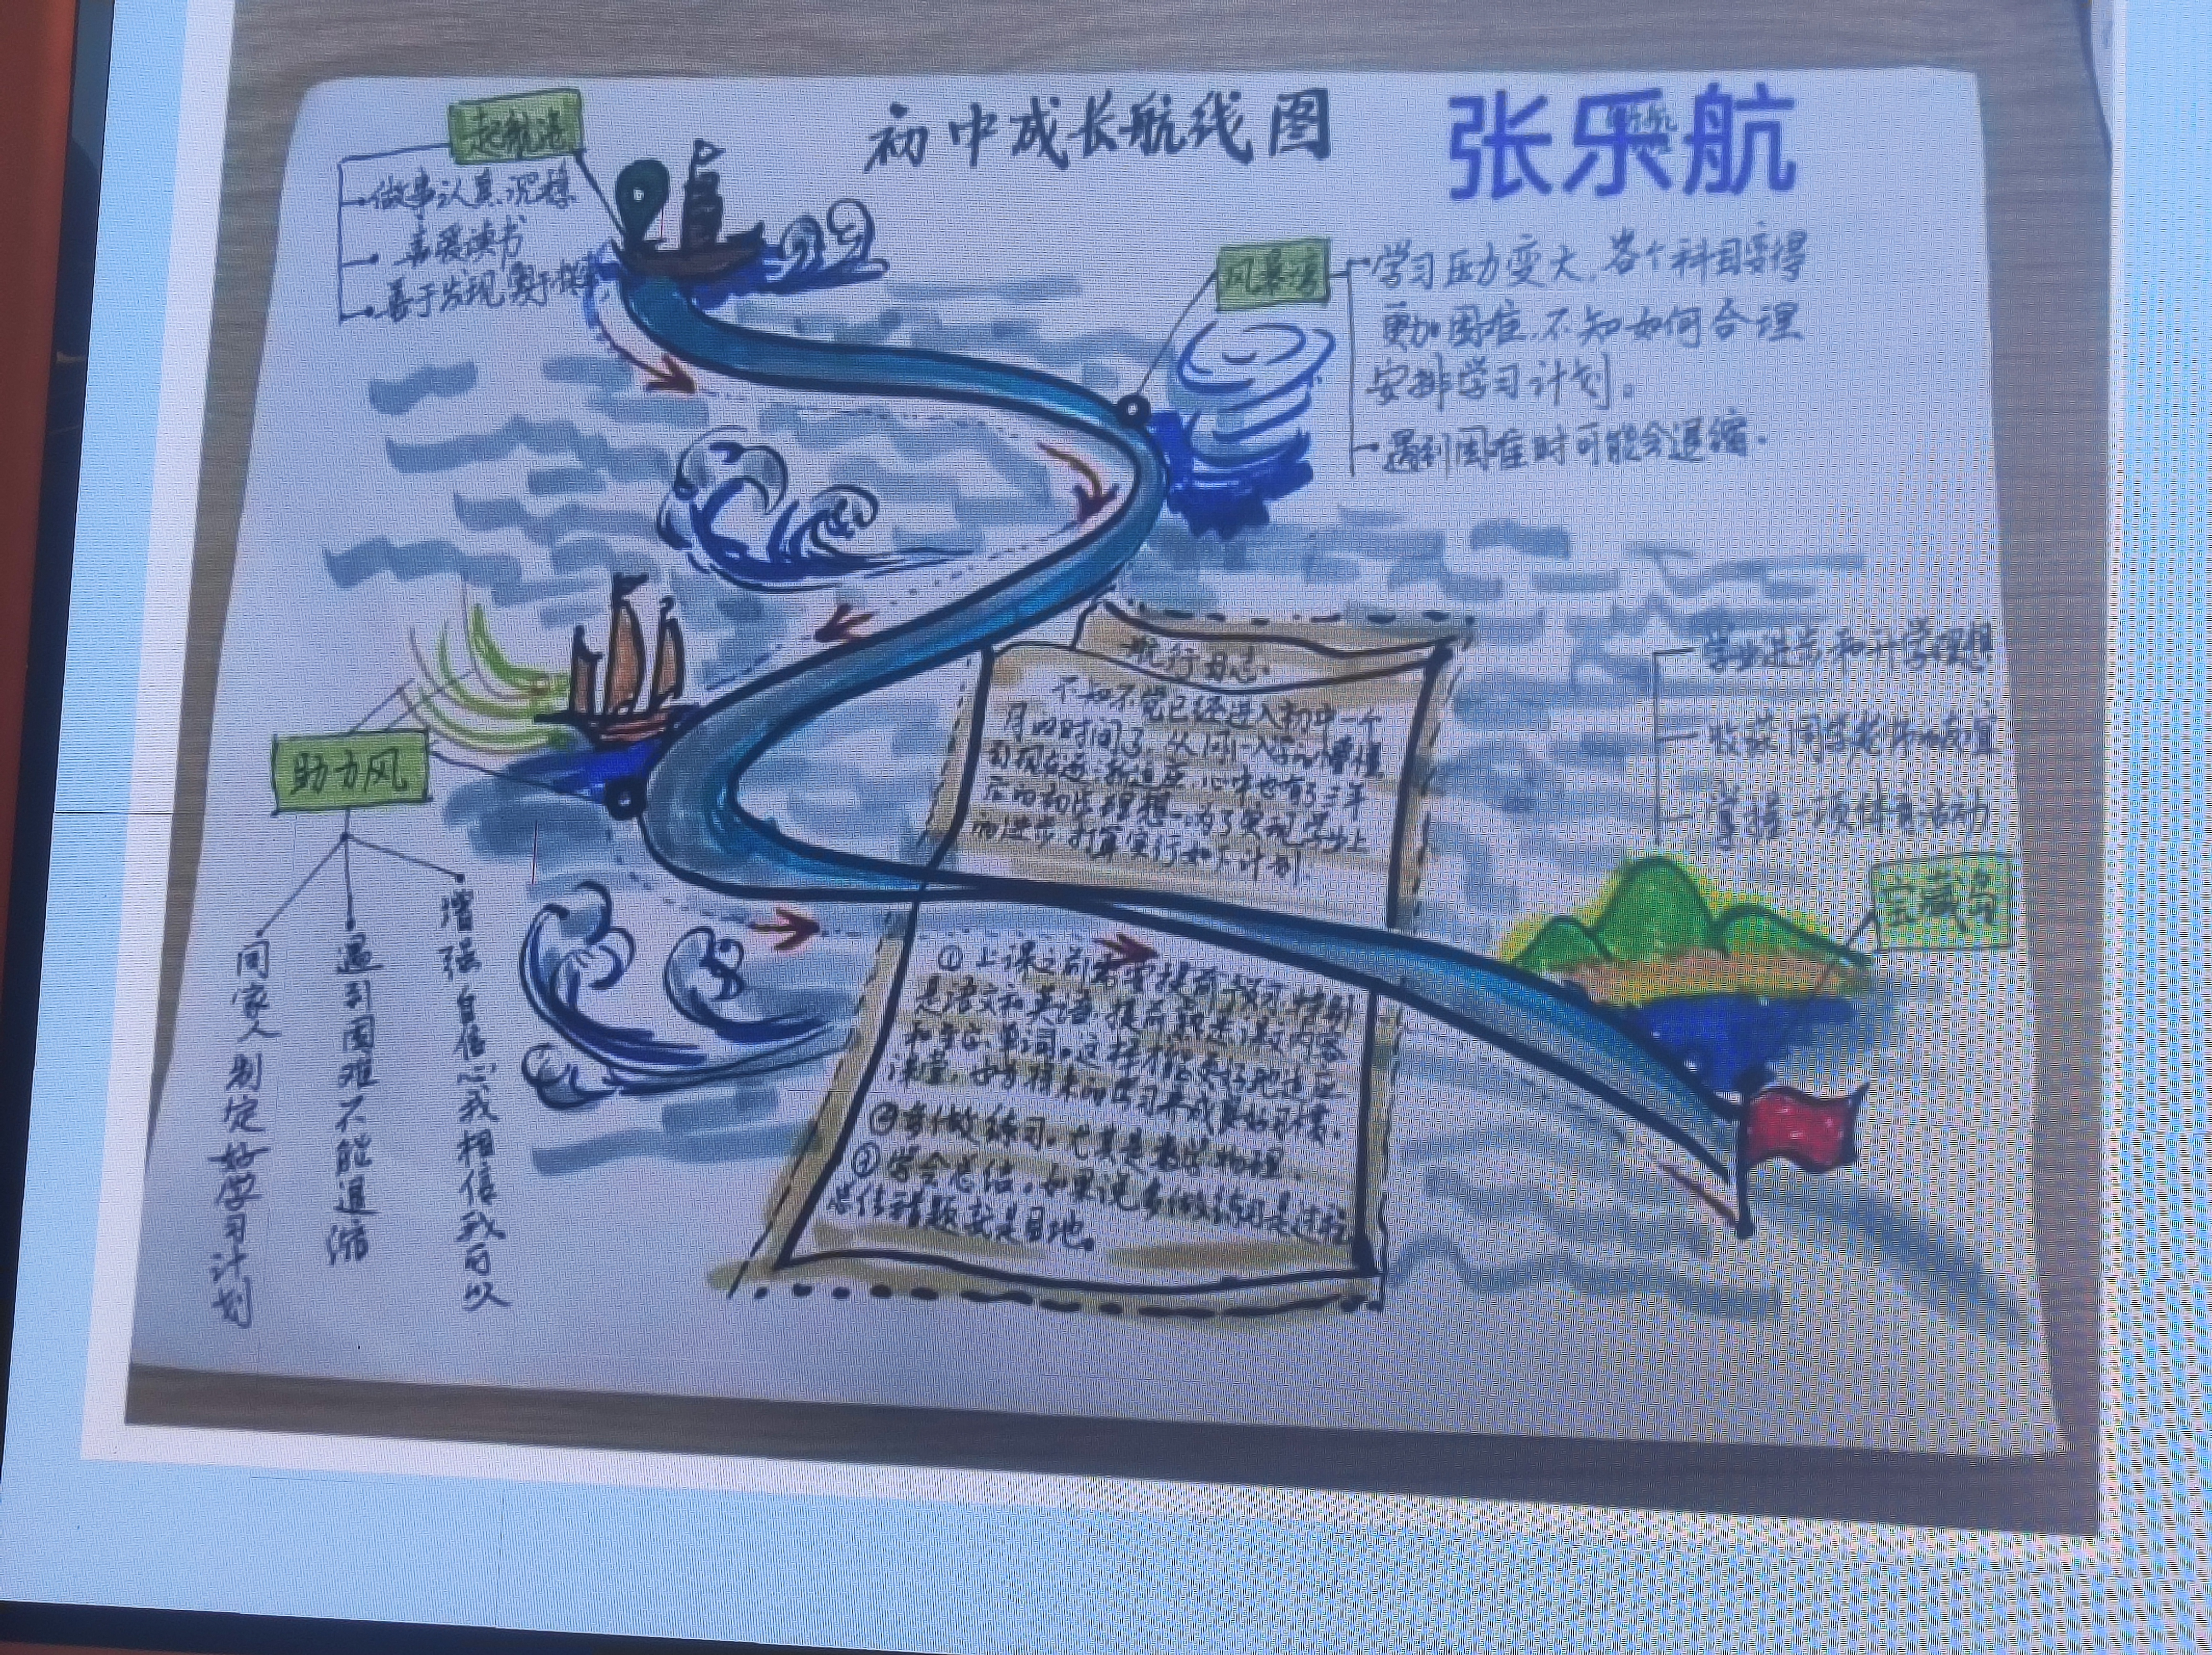 初中成长航线图
张乐航
起航港
做事认真,沉稳
喜爱读书
善于发现,勇于探索
风暴湾
学习压力变大,各个科目变得
更加困难,不知如何合理
安排学习计划。
遇到困难时可能会退缩.
助力风
同家人制定好学习计划
遇到困难不能退缩
增强自信心我相信我可以
航行日志.
不知不觉已经进入初中一个
月的时间了,从刚入学的懵懂
到现在逐渐适应,心中也有了三年
后的初步理想。为了实现学业上
的进步,打算实行如下计划.
①上课之前需要提前预习,特别
是语文和英语,提前熟悉课文内容
和字音、单词。这样才能更好地适应
课堂,也为将来的学习养成良好习惯.
②多做练习。尤其是数学物理.
③学会总结。如果说多做练习是过程
总结错题就是目地。
学业进步和升学理想
收获同学老师的友谊
掌握一项体育活动
宝藏岛